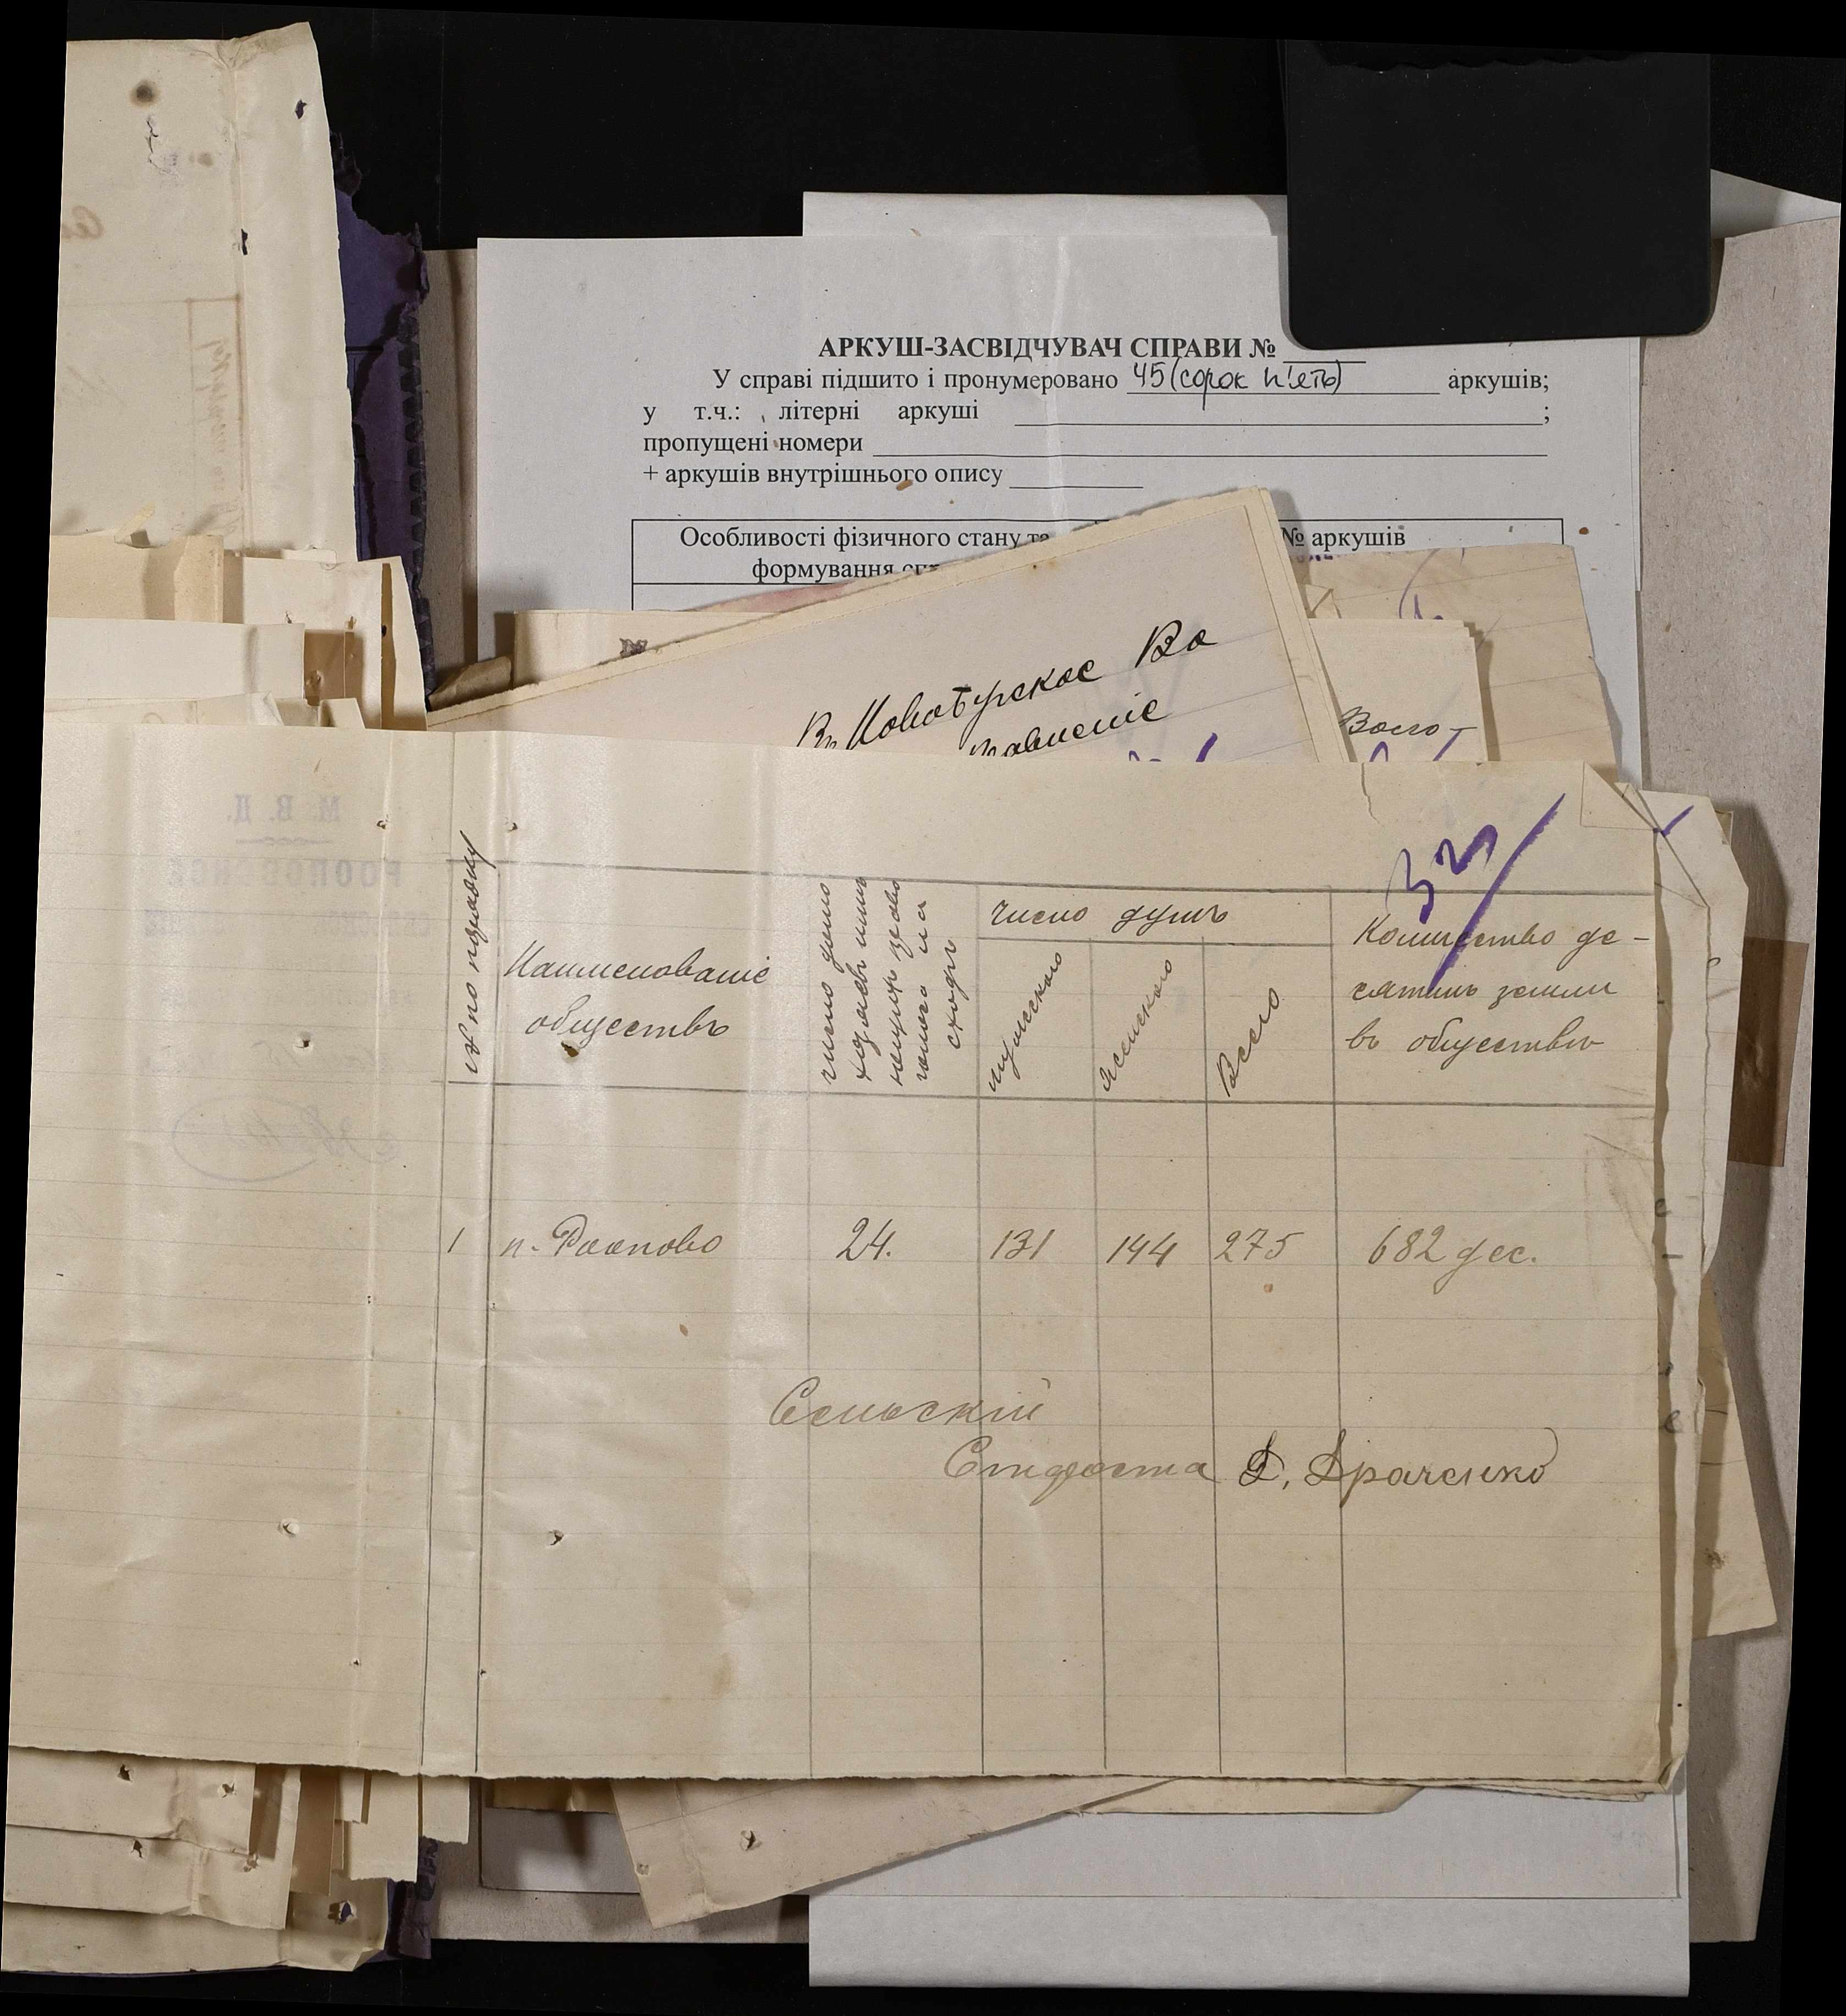 АРКУШ-ЗАСВІДЧУВАЧ СПРАВИ №
У справі підшито і пронумеровано 45 (сорок п'ять) аркушів;
у т.ч.: літерні аркуші ;
пропущені номери
+ аркушів внутрішнього опису
Особливості фізичного стану та
формування
№ аркушів
Въ Новобугское Во
Воло-
М. В. Д.
32
№ по порядку
Наименованіе
обществъ
число домо
хозяевъ имѣ
ющихъ право
голоса на
сходѣ
Число душъ
мужского
женского
Всего
Количество де-
сятинъ земли
въ обществѣ
1 п. Роопово 24. 131 144 275 682 дес.
Сельскій
Староста Д. Драченко